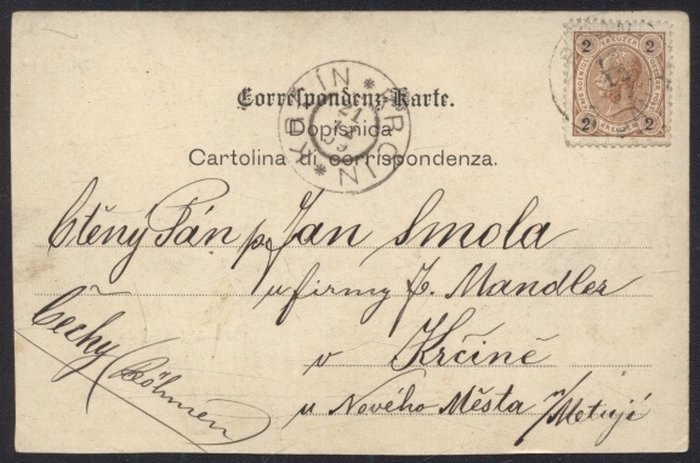 2 KREUZER 2
2 2
Correspondenz-Karte.
Dopisnica
Cartolina di corrispondenza.
KRČIN
21
12
Ctěný Pán p. Jan Smola
u firmy J. Mandler
v Krčíně
u Nového Města n/Metují
Čechy
(Böhmen)